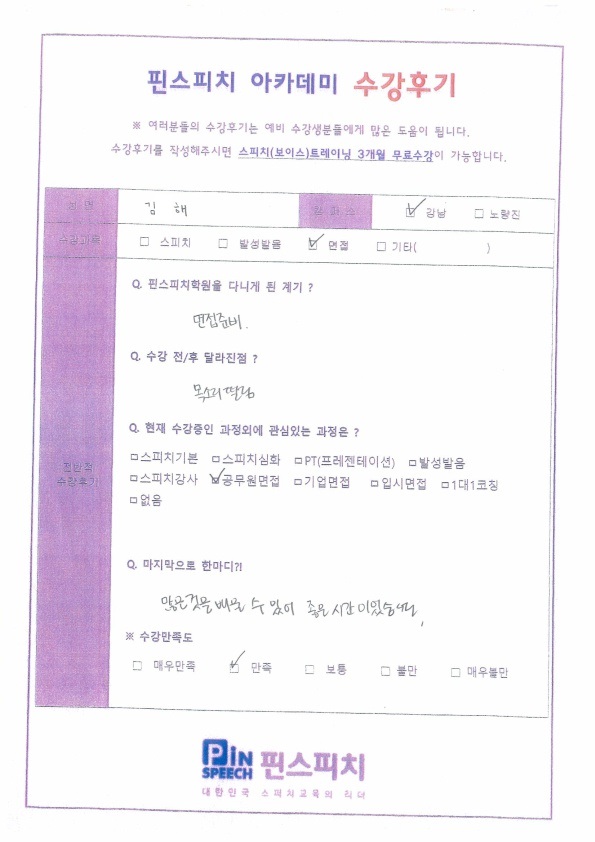 핀스피치 아카데미 수강후기
※ 여러분들의 수강후기는 예비 수강생분들에게 많은 도움이 됩니다.
수강후기를 작성해주시면 스피치(보이스)트레이닝 3개월 무료수강이 가능합니다.
성 명 김 해 ☑ 강남 □ 노량진
수강과목 □ 스피치 □ 발성발음 ☑ 면접 □ 기타( )
Q. 핀스피치학원을 다니게 된 계기 ?
면접준비.
Q. 수강 전/후 달라진점 ?
목소리 떨림
Q. 현재 수강중인 과정외에 관심있는 과정은 ?
전반적
수강후기
□스피치기본 □스피치심화 □PT(프레젠테이션) □발성발음
□스피치강사 ☑공무원면접 □기업면접 □입시면접 □1대1코칭
□없음
Q. 마지막으로 한마디?!
많은것을 배울 수 있어 좋은 시간이었습니다.
※ 수강만족도
□ 매우만족 ☑ 만족 □ 보통 □ 불만 □ 매우불만
PiN
SPEECH
핀스피치
대한민국 스피치교육의 리더